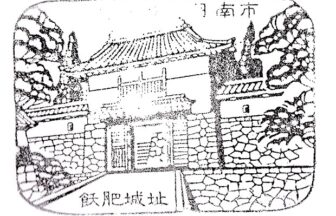 日南市
飫肥城址